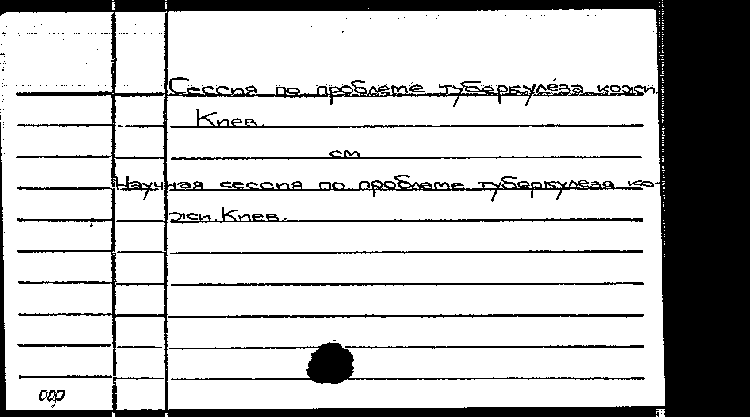 Сессия по проблеме туберкулёза кожи.
Киев.
см
Научная сессия по проблеме туберкулеза ко-
жи. Киев.